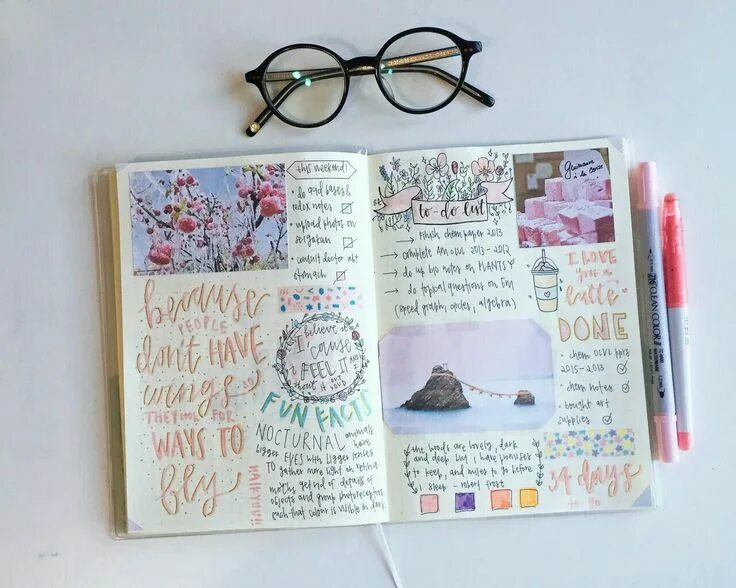 this weekend!
• do acid bases &
redox notes
• upload photos on
• consult doctor abt
stomach
because
PEOPLE
don't HAVE
wings SO
THEY LOOK FOR
WAYS TO
fly
HAIKYUU!!
I believe it
'cause
I FEEL IT AND I
SHOUT IT OUT LOUD
FUN FACTS
NOCTURNAL animals
have
bigger EYES with bigger lenses
TO gather more light on retina.
moths get rid of details of
objects and group photoreceptors
such that colour is visible in dark
to-do list
→ finish chem paper 2013
→ complete AM OLVL 2013 - 2012
→ do up bio notes on PLANTS
→ do topical questions on EM
(speed graph, circles, algebra)
Guimauve
à la
I LOVE
you a
latte
DONE
• chem OLVL pprs
2015 - 2013
• chem notes
• bought art
supplies
the woods are lovely, dark
and deep but i have promises
to keep, and miles to go before
i sleep - robert frost
34 days
to go
CLEAN COLOR